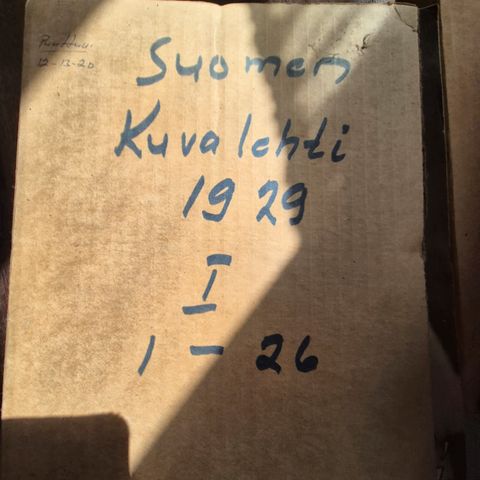 12-13-20
Suomen
Kuvalehti
1929
I
1 - 26